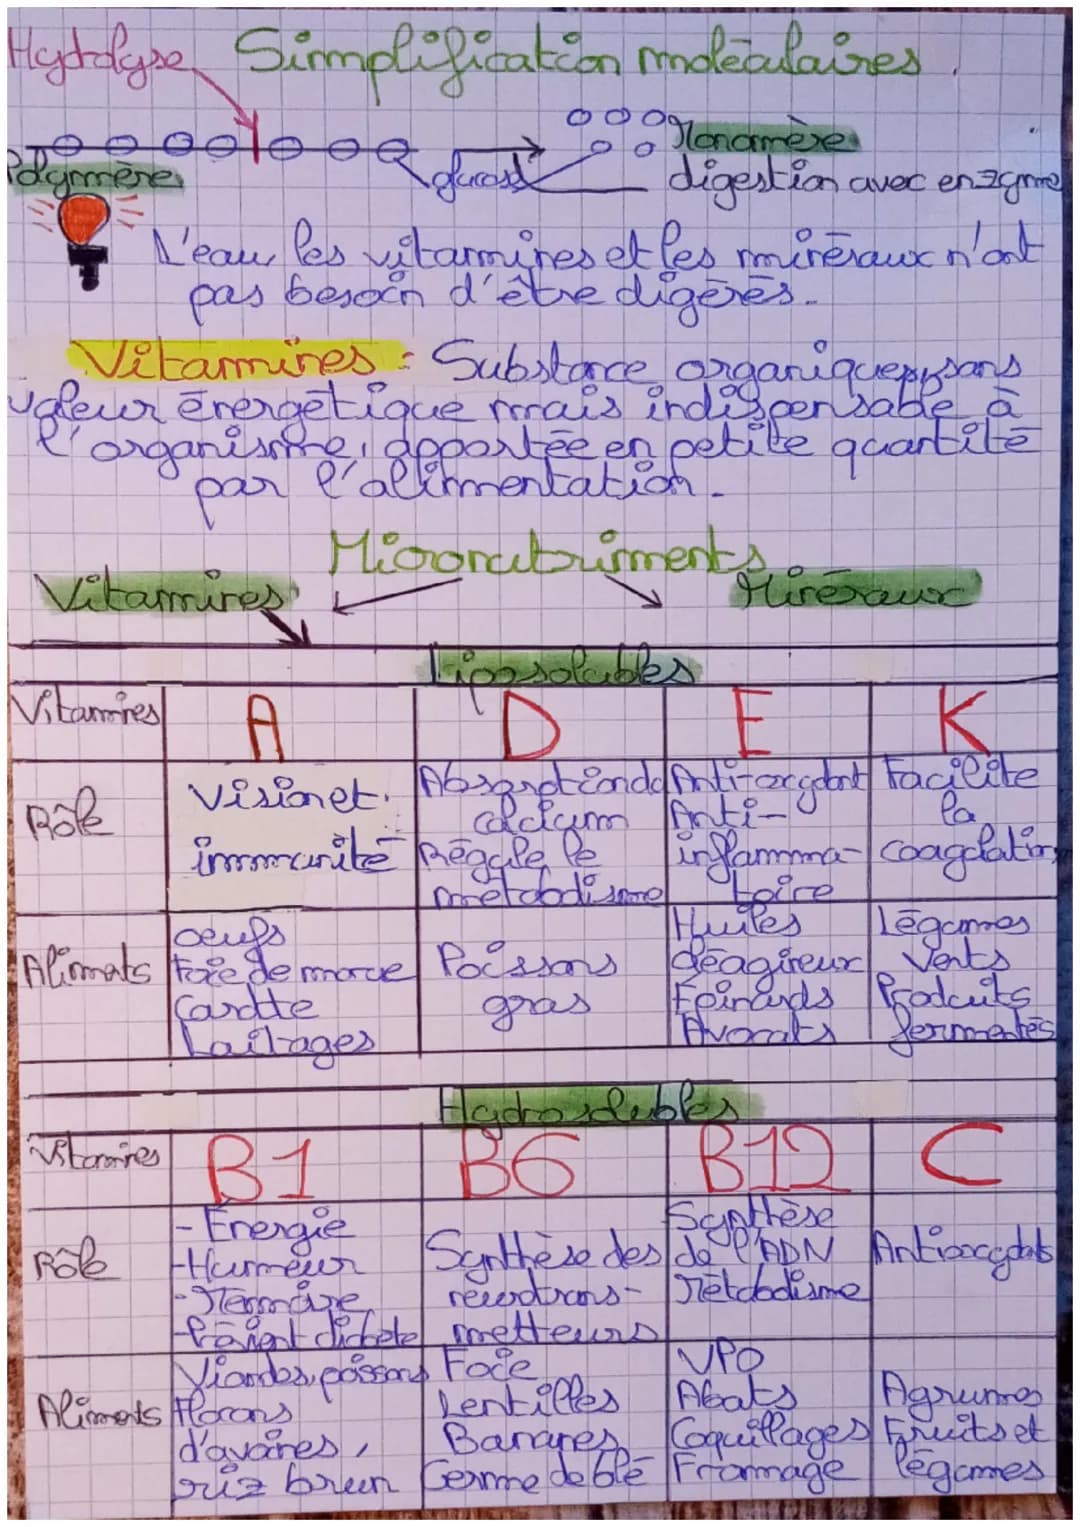 Hydrolyse Simplification moléculaires.
Polymère glucose Monomère
digestion avec enzyme
L'eau, les vitamines et les minéraux n'ont
pas besoin d'être digérés.
Vitamines : Substance organique, sans
valeur énergétique mais indispensable à
l'organisme, apportée en petite quantité
par l'alimentation.
Micronutriments
Vitamines Minéraux
Liposolubles
Vitamines A D E K
Rôle
Vision et
immunité
Absorption du
calcium
Régule le
métabolisme
Anti-oxydant
Anti-
inflamma-
toire
Facilite
la
coagulation
Aliments
oeufs
Foie de morue
Carotte
Laitages
Poissons
gras
Huiles
oléagineux
Epinards
Avocats
Légumes
Verts
Produits
fermentés
Hydrosolubles
Vitamines B1 B6 B12 C
Rôle
- Énergie
- Humeur
- Mémoire
- Prévient diabète
Synthèse des
neurotrans-
metteurs
Synthèse
de l'ADN
Métabolisme
Antioxydants
Aliments
Viandes, poissons
flocons
d'avoines,
riz brun
Foie
Lentilles
Bananes
Germe de blé
VPO
Abats
Coquillages
Fromage
Agrumes
Fruits et
légumes